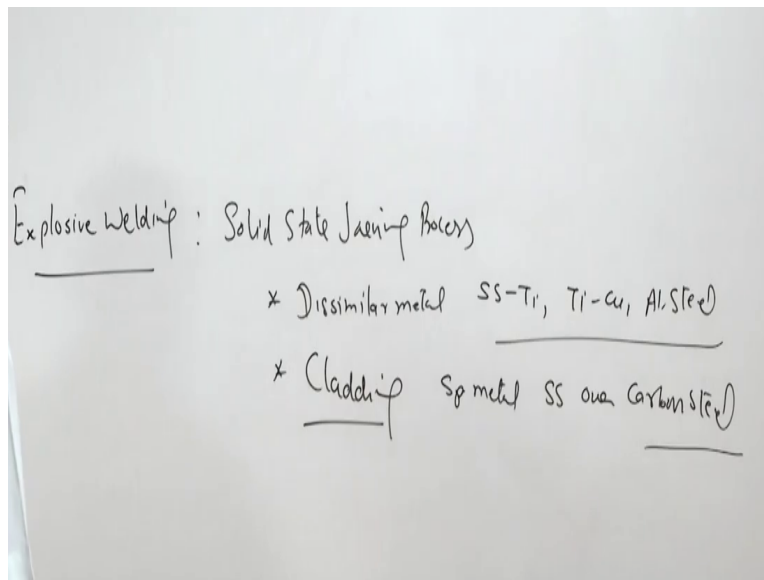 Explosive Welding : Solid State Joening Process
* Dissimilar metal SS-Ti, Ti-Cu, Al-Steel
* Cladding Sp metal SS over Carbon Steel